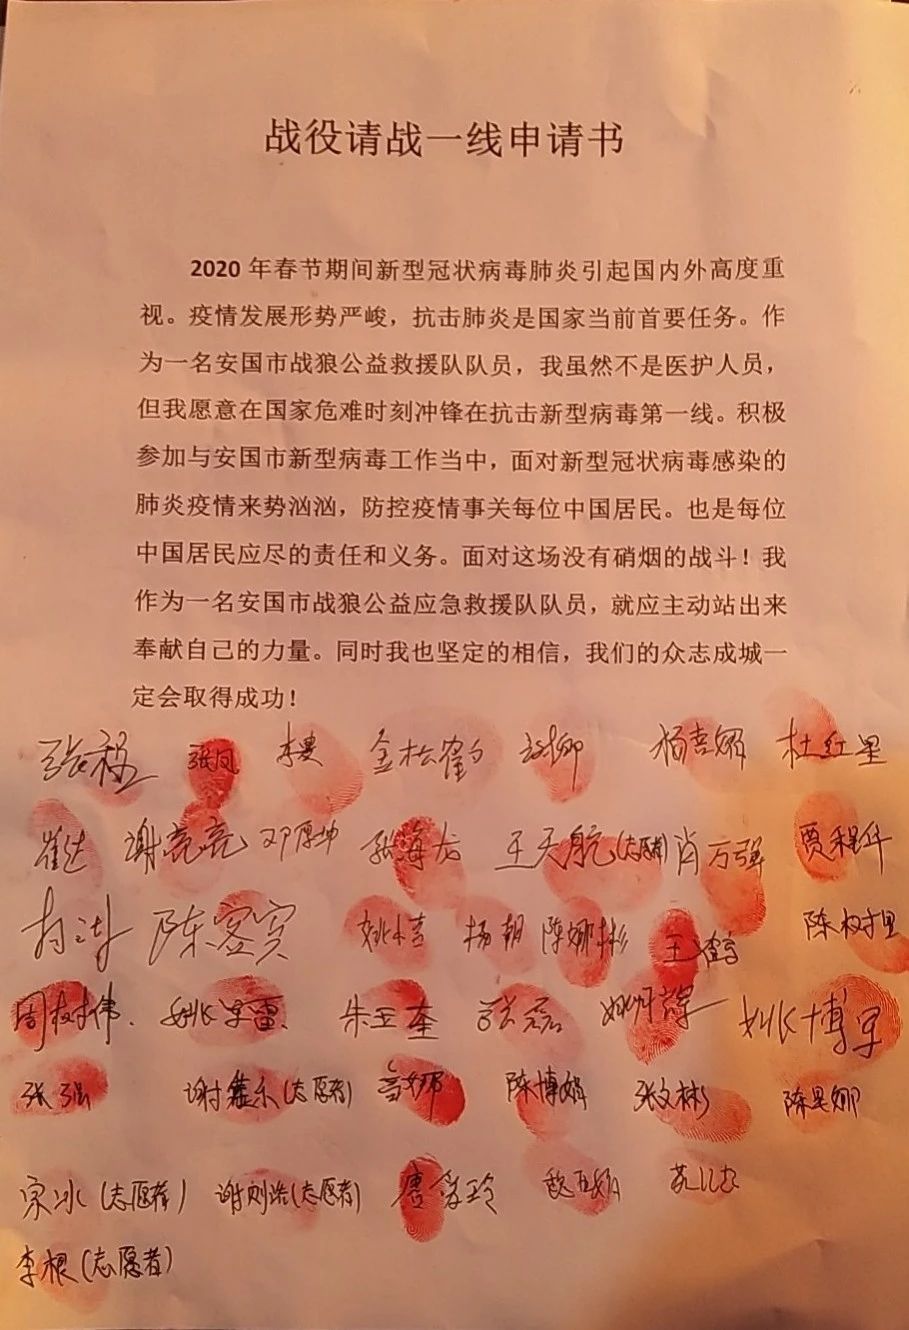 战役请战一线申请书
2020 年春节期间新型冠状病毒肺炎引起国内外高度重
视。疫情发展形势严峻，抗击肺炎是国家当前首要任务。作
为一名安国市战狼公益救援队队员，我虽然不是医护人员，
但我愿意在国家危难时刻冲锋在抗击新型病毒第一线。积极
参加与安国市新型病毒工作当中，面对新型冠状病毒感染的
肺炎疫情来势汹汹，防控疫情事关每位中国居民。也是每位
中国居民应尽的责任和义务。面对这场没有硝烟的战斗！我
作为一名安国市战狼公益应急救援队队员，就应主动站出来
奉献自己的力量。同时我也坚定的相信，我们的众志成城一
定会取得成功！
张凤 金松鹤 杨喜娜 杜红星
崔达 谢亮亮 邓厚坤 张海龙 王天航(志愿者) 肖万强 贾程华
杨朝 陈娜彬 王鹤
张磊 姚博军
张强 (志愿者) 陈博娟 张文彬 陈星娜
宋冰(志愿者) (志愿者) 唐爱玲
李根(志愿者)